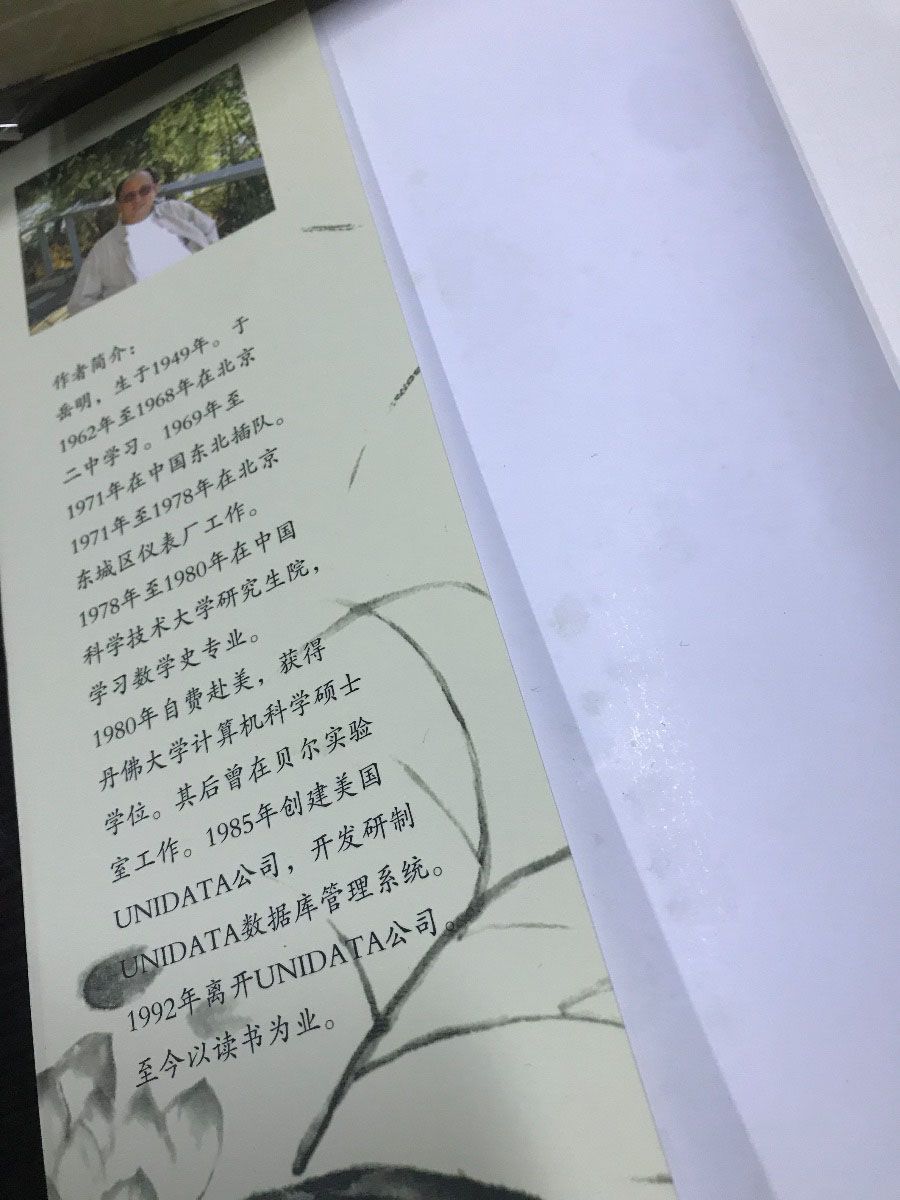 作者简介：
岳明，生于1949年。于
1962年至1968年在北京
二中学习。1969年至
1971年在中国东北插队。
1971年至1978年在北京
东城区仪表厂工作。
1978年至1980年在中国
科学技术大学研究生院，
学习数学史专业。
1980年自费赴美，获得
丹佛大学计算机科学硕士
学位。其后曾在贝尔实验
室工作。1985年创建美国
UNIDATA公司，开发研制
UNIDATA数据库管理系统。
1992年离开UNIDATA公司。
至今以读书为业。